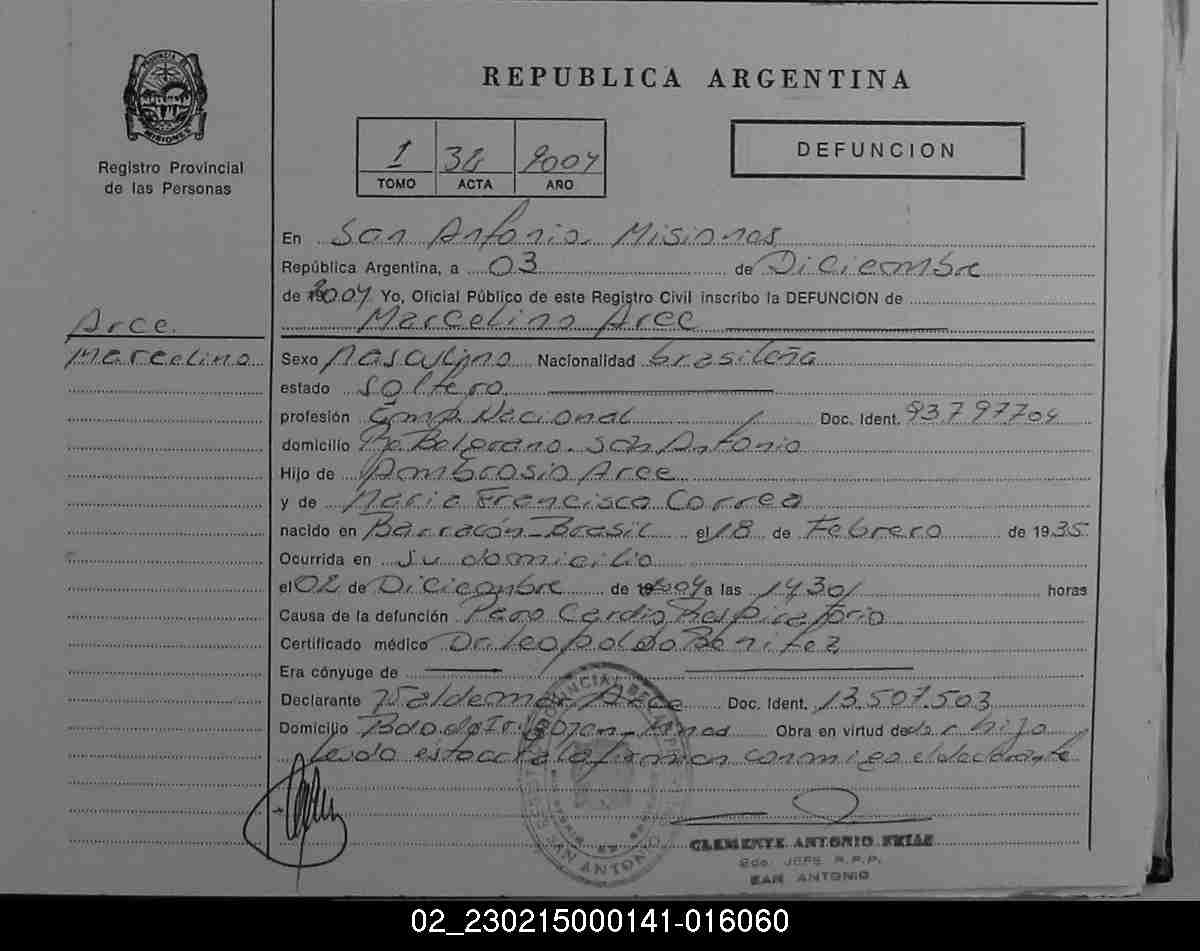 PROVINCIA DE
MISIONES
Registro Provincial
de las Personas
REPUBLICA ARGENTINA
1 38 2004
TOMO ACTA AÑO
DEFUNCION
En San Antonio. Misiones
República Argentina, a 03 de Diciembre
de 2004 Yo, Oficial Público de este Registro Civil inscribo la DEFUNCION de
Marcelino Arce
Arce.
Marcelino
Sexo Masculino Nacionalidad brasileña
estado soltero
profesión Emp. Nacional Doc. Ident. 93.797704
domicilio Belgrano. San Antonio
Hijo de Ambrosio Arce
y de Maria Francisca Correa
nacido en Barracón-Brasil el 18 de Febrero de 1935
Ocurrida en su domicilio
el 02 de Diciembre de 2004 a las 14,30 horas
Causa de la defunción Paro Cardio Respiratorio
Certificado médico Dr. Leopoldo Benitez
Era cónyuge de
Declarante Waldemar Arce Doc. Ident. 13.507.503
Domicilio Obra en virtud de ser hijo
Leido esta acta la firman conmigo el declarante
SAN ANTONIO
CLEMENTE ANTONIO
2do. JEFE R.P.P.
SAN ANTONIO
02_230215000141-016060